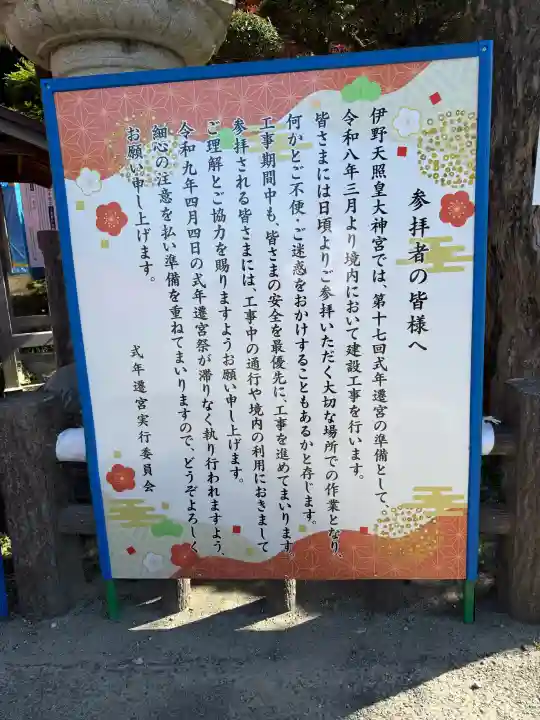 参拝者の皆様へ
伊野天照皇大神宮では、第十七回式年遷宮の準備として、
令和八年三月より境内において建設工事を行います。
皆さまには日頃よりご参拝いただく大切な場所での作業となり、
何かとご不便・ご迷惑をおかけすることもあるかと存じます。
工事期間中も、皆さまの安全を最優先に、工事を進めてまいります。
参拝される皆さまには、工事中の通行や境内の利用におきまして
ご理解とご協力を賜りますようお願い申し上げます。
令和九年四月四日の式年遷宮祭が滞りなく執り行われますよう、
細心の注意を払い準備を重ねてまいりますので、どうぞよろしく
お願い申し上げます。
式年遷宮実行委員会